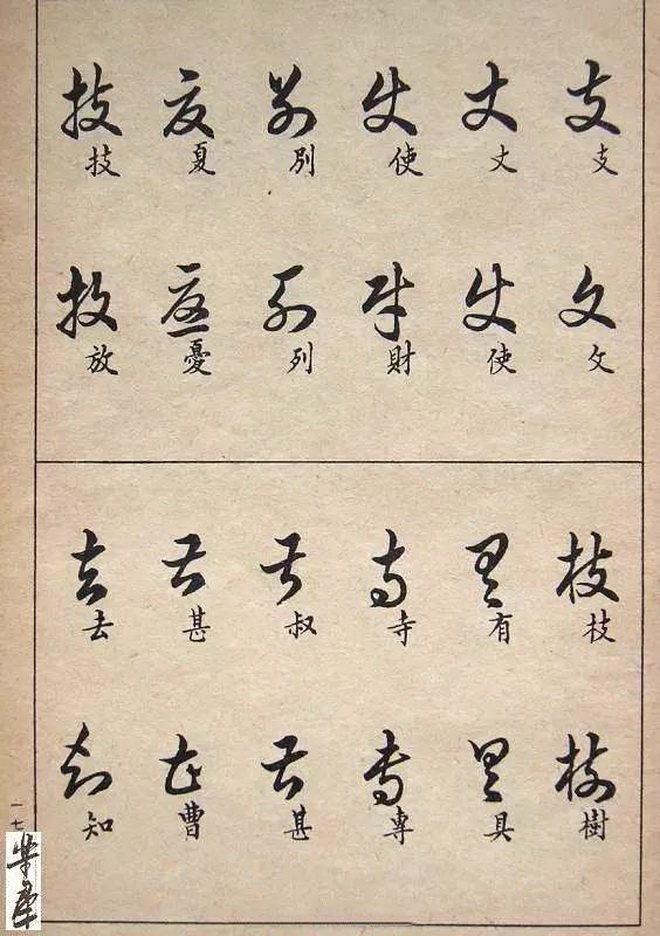 支 支 攵 攵
丈 丈 使 使
使 使 財 財
別 別 列 列
夏 夏 憂 憂
技 技 放 放
枝 枝 樹 樹
有 有 具 具
寺 寺 專 專
叔 叔 甚 甚
甚 甚 曹 曹
去 去 知 知
一七